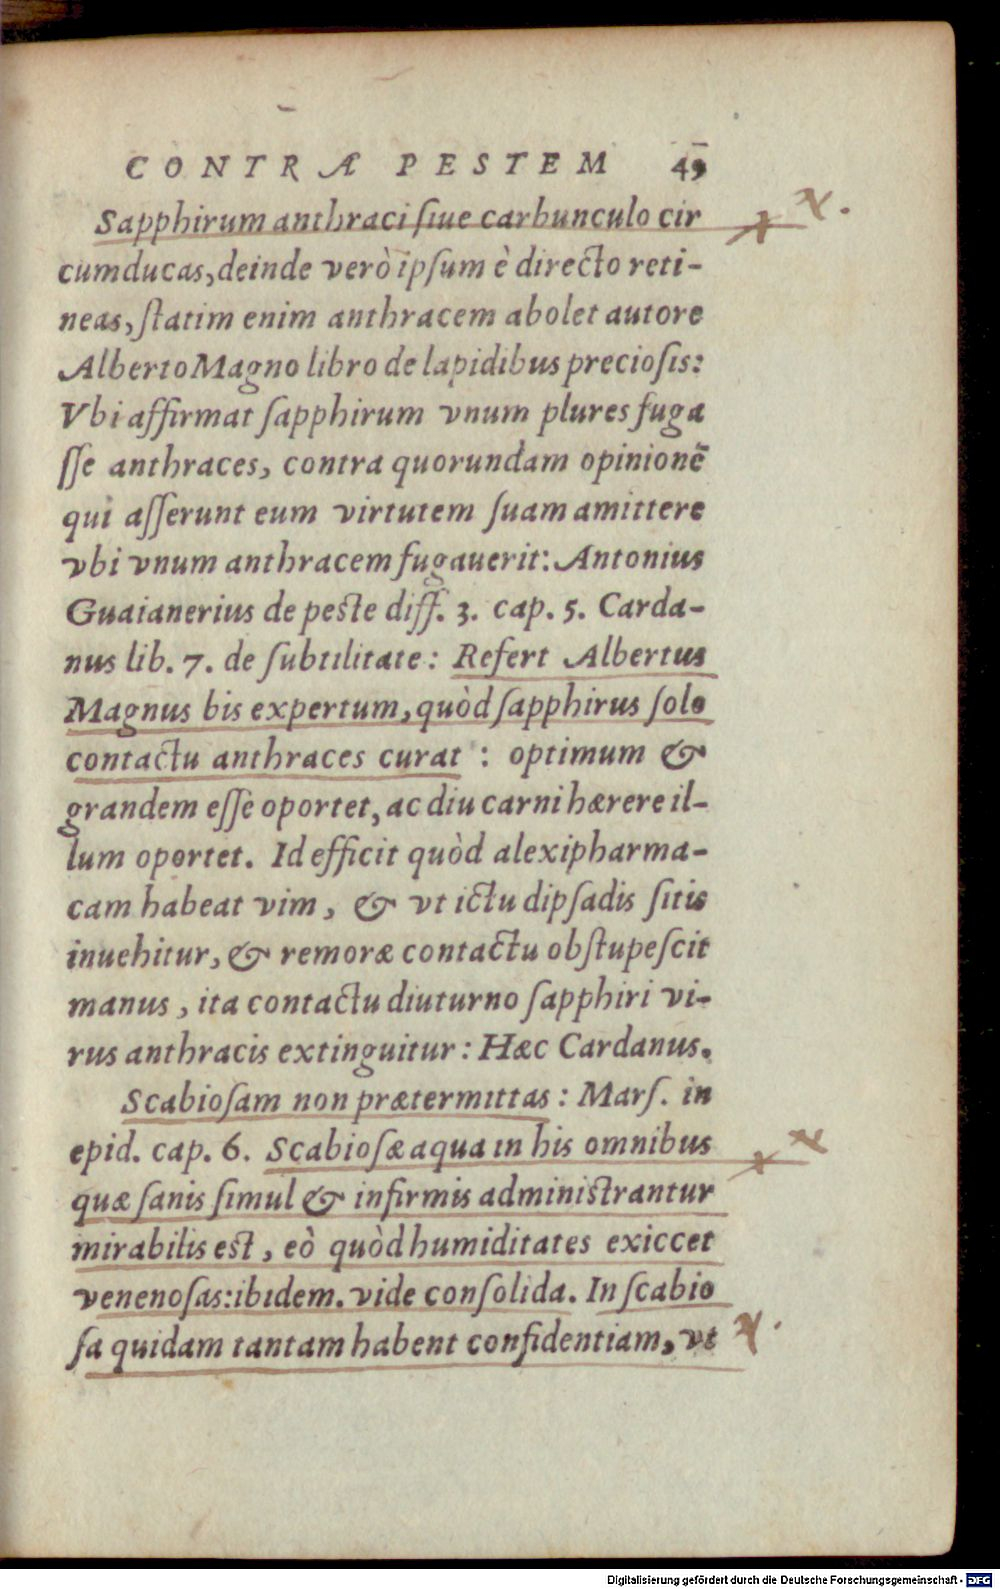 CONTRÆ PESTEM 49
Sapphirum anthraci ſiue carbunculo cir
cumducas, deinde verò ipſum è directo reti-
neas, ſtatim enim anthracem abolet autore
Alberto Magno libro de lapidibus precioſis:
Vbi affirmat ſapphirum vnum plures fuga
ſſe anthraces, contra quorundam opinionē
qui aſſerunt eum virtutem ſuam amittere
vbi vnum anthracem fugauerit: Antonius
Guaianerius de peste diff. 3. cap. 5. Carda-
nus lib. 7. de ſubtilitate: Refert Albertus
Magnus bis expertum, quòd ſapphirus ſolo
contactu anthraces curat : optimum &
grandem eſſe oportet, ac diu carni hærere il-
lum oportet. Id efficit quòd alexipharma-
cam habeat vim, & vt ictu dipſadis ſitis
inuehitur, & remoræ contactu obſtupeſcit
manus, ita contactu diuturno ſapphiri vi-
rus anthracis extinguitur: Hæc Cardanus.
Scabioſam non prætermittas: Marſ. in
epid. cap. 6. Scabioſæ aqua in his omnibus
quæ ſanis ſimul & infirmis administrantur
mirabilis est, eò quòd humiditates exiccet
venenoſas: ibidem. vide conſolida. In ſcabio
ſa quidam tantam habent confidentiam, vt
Digitalisierung gefördert durch die Deutsche Forschungsgemeinschaft - DFG